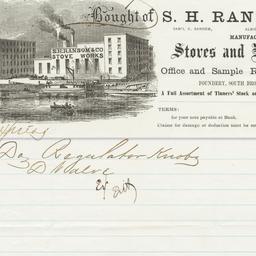 Bought of S. H. RAN
SAM'L H. RANSOM,
MANUFAC
S.H.RANSOM & CO.
STOVE WORKS
Stoves and
Office and Sample R
FOUNDERY, SOUTH BRO
A Full Assortment of Tinners' Stock
TERMS:
for your note payable at Bank.
Claims for damage or deduction must be
Regulator Knobs
D Valve